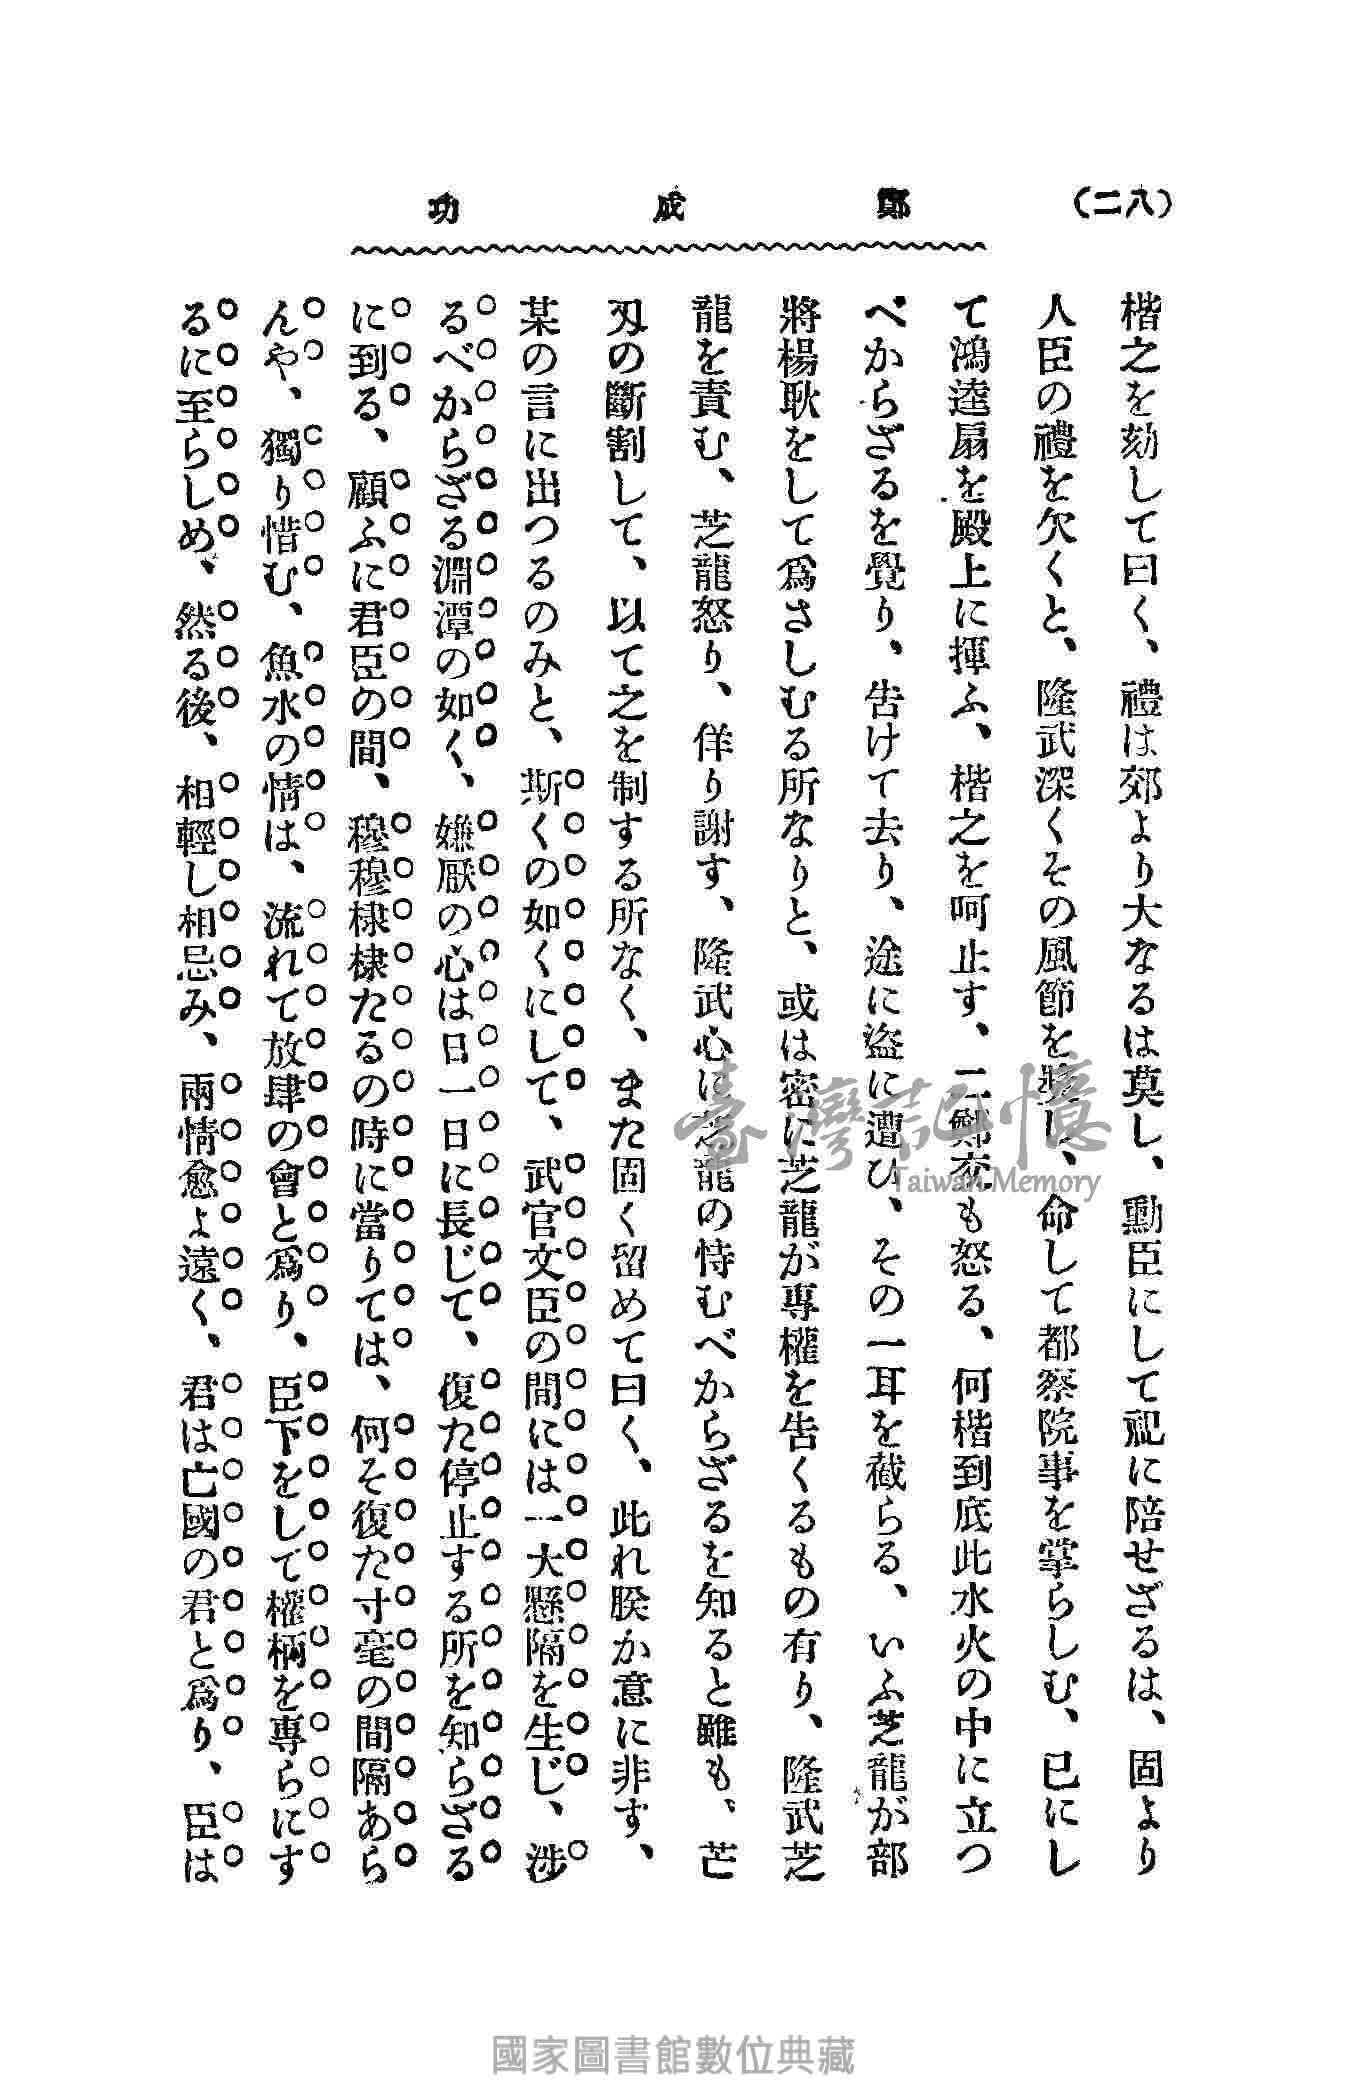 (八二)
鄭成功
楷之を劾して曰く、禮は郊より大なるは莫し、勳臣にして祀に陪せざるは、固より
人臣の禮を欠くと、隆武深くその風節を奬し、命して都察院事を掌らしむ、已にし
て鴻逵扇を殿上に揮ふ、楷之を呵止す、二鄭交も怒る、何楷到底此水火の中に立つ
べからざるを覺り、告けて去り、途に盜に遭ひ、その一耳を截らる、いふ芝龍が部
將楊耿をして爲さしむる所なりと、或は密に芝龍が專權を告くるもの有り、隆武芝
龍を責む、芝龍怒り、佯り謝す、隆武心に芝龍の恃むべからざるを知ると雖も、芒
刄の斷割して、以て之を制する所なく、また固く留めて曰く、此れ朕か意に非す、
某の言に出つるのみと、斯くの如くにして、武官文臣の間には一大懸隔を生じ、涉
るべからざる淵潭の如く、嫌厭の心は日一日に長じて、復た停止する所を知らざる
に到る、顧ふに君臣の間、穆穆棣棣たるの時に當りては、何そ復た寸毫の間隔あら
んや、獨り惜む、魚水の情は、流れて放肆の會と爲り、臣下をして權柄を專らにす
るに至らしめ、然る後、相輕し相忌み、兩情愈よ遠く、君は亡國の君と爲り、臣は
臺灣記憶
Taiwan Memory
國家圖書館數位典藏